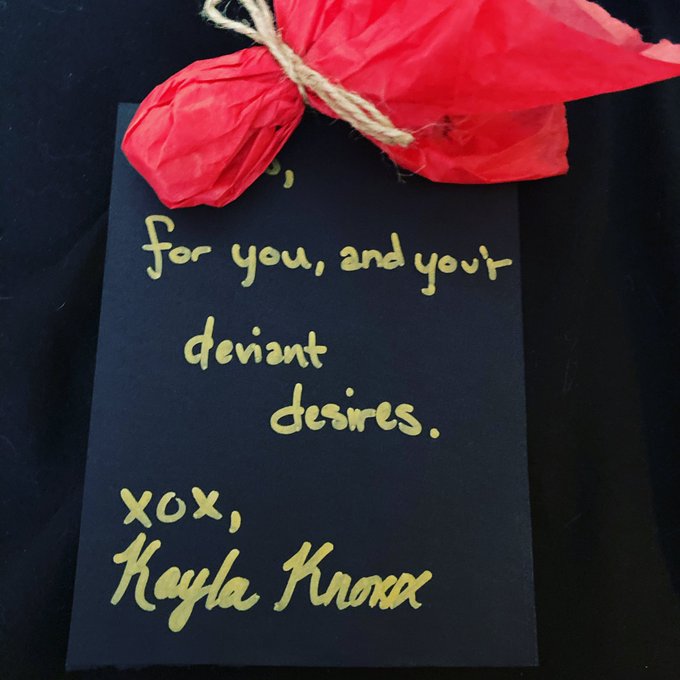 for you, and you'r
deviant
desires.
xox,
Kayla Knoxx